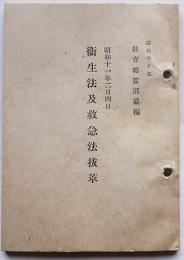 教育總監部纂編
昭和十一年二月四日
衞生法及救急法拔萃